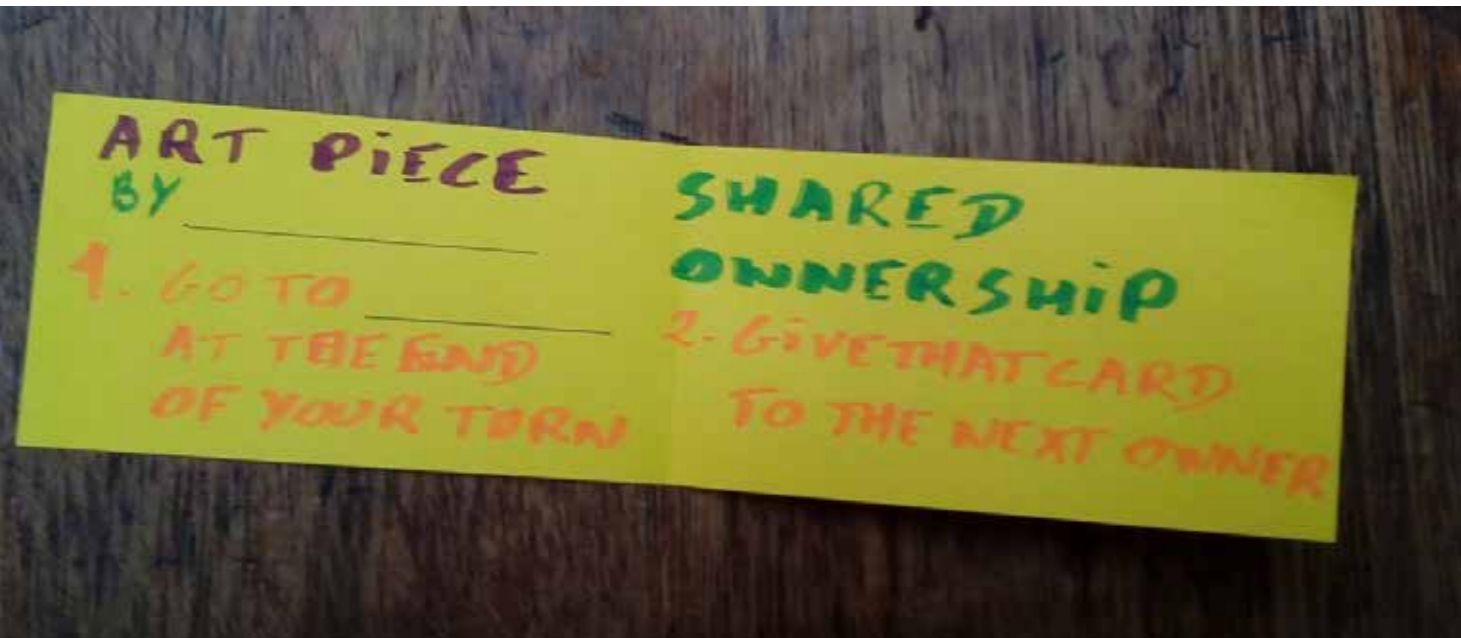 ART PiECE
BY ____________
1. GO TO ____________
AT THE END
OF YOUR TURN
SHARED
OWNERSHiP
2. GiVE THAT CARD
TO THE NEXT OWNER